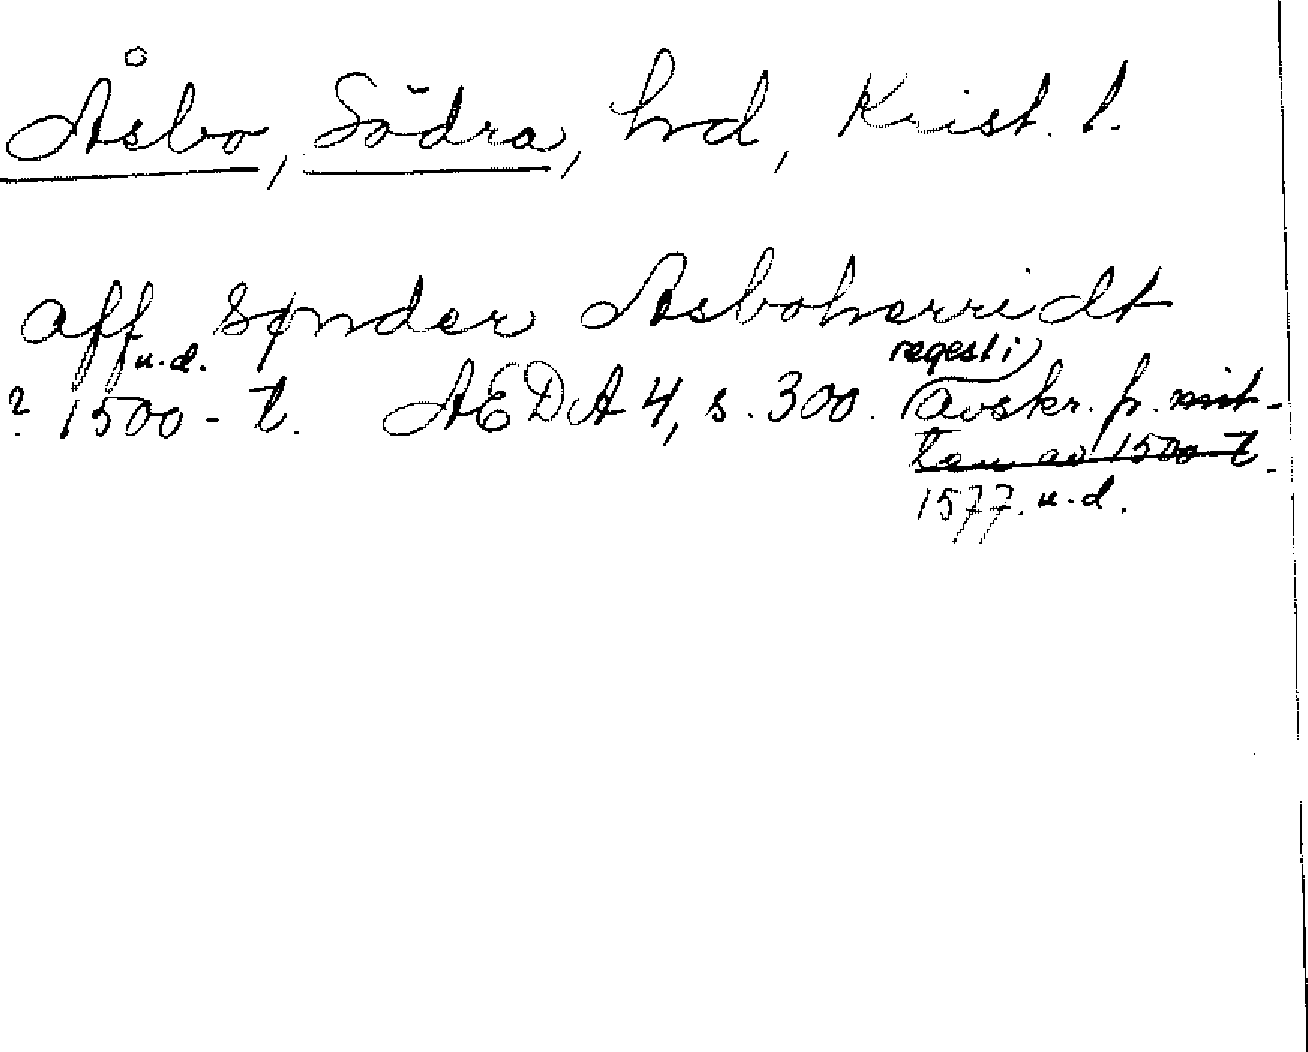 Åsbo, Södra, hrd, Krist. l.
aff Sønder Asboherridt
u.d. regest i
? 1500-t. AEDA 4, s. 300. avskr. fr. mit-
ten av 1500-t.
1577. u.d.